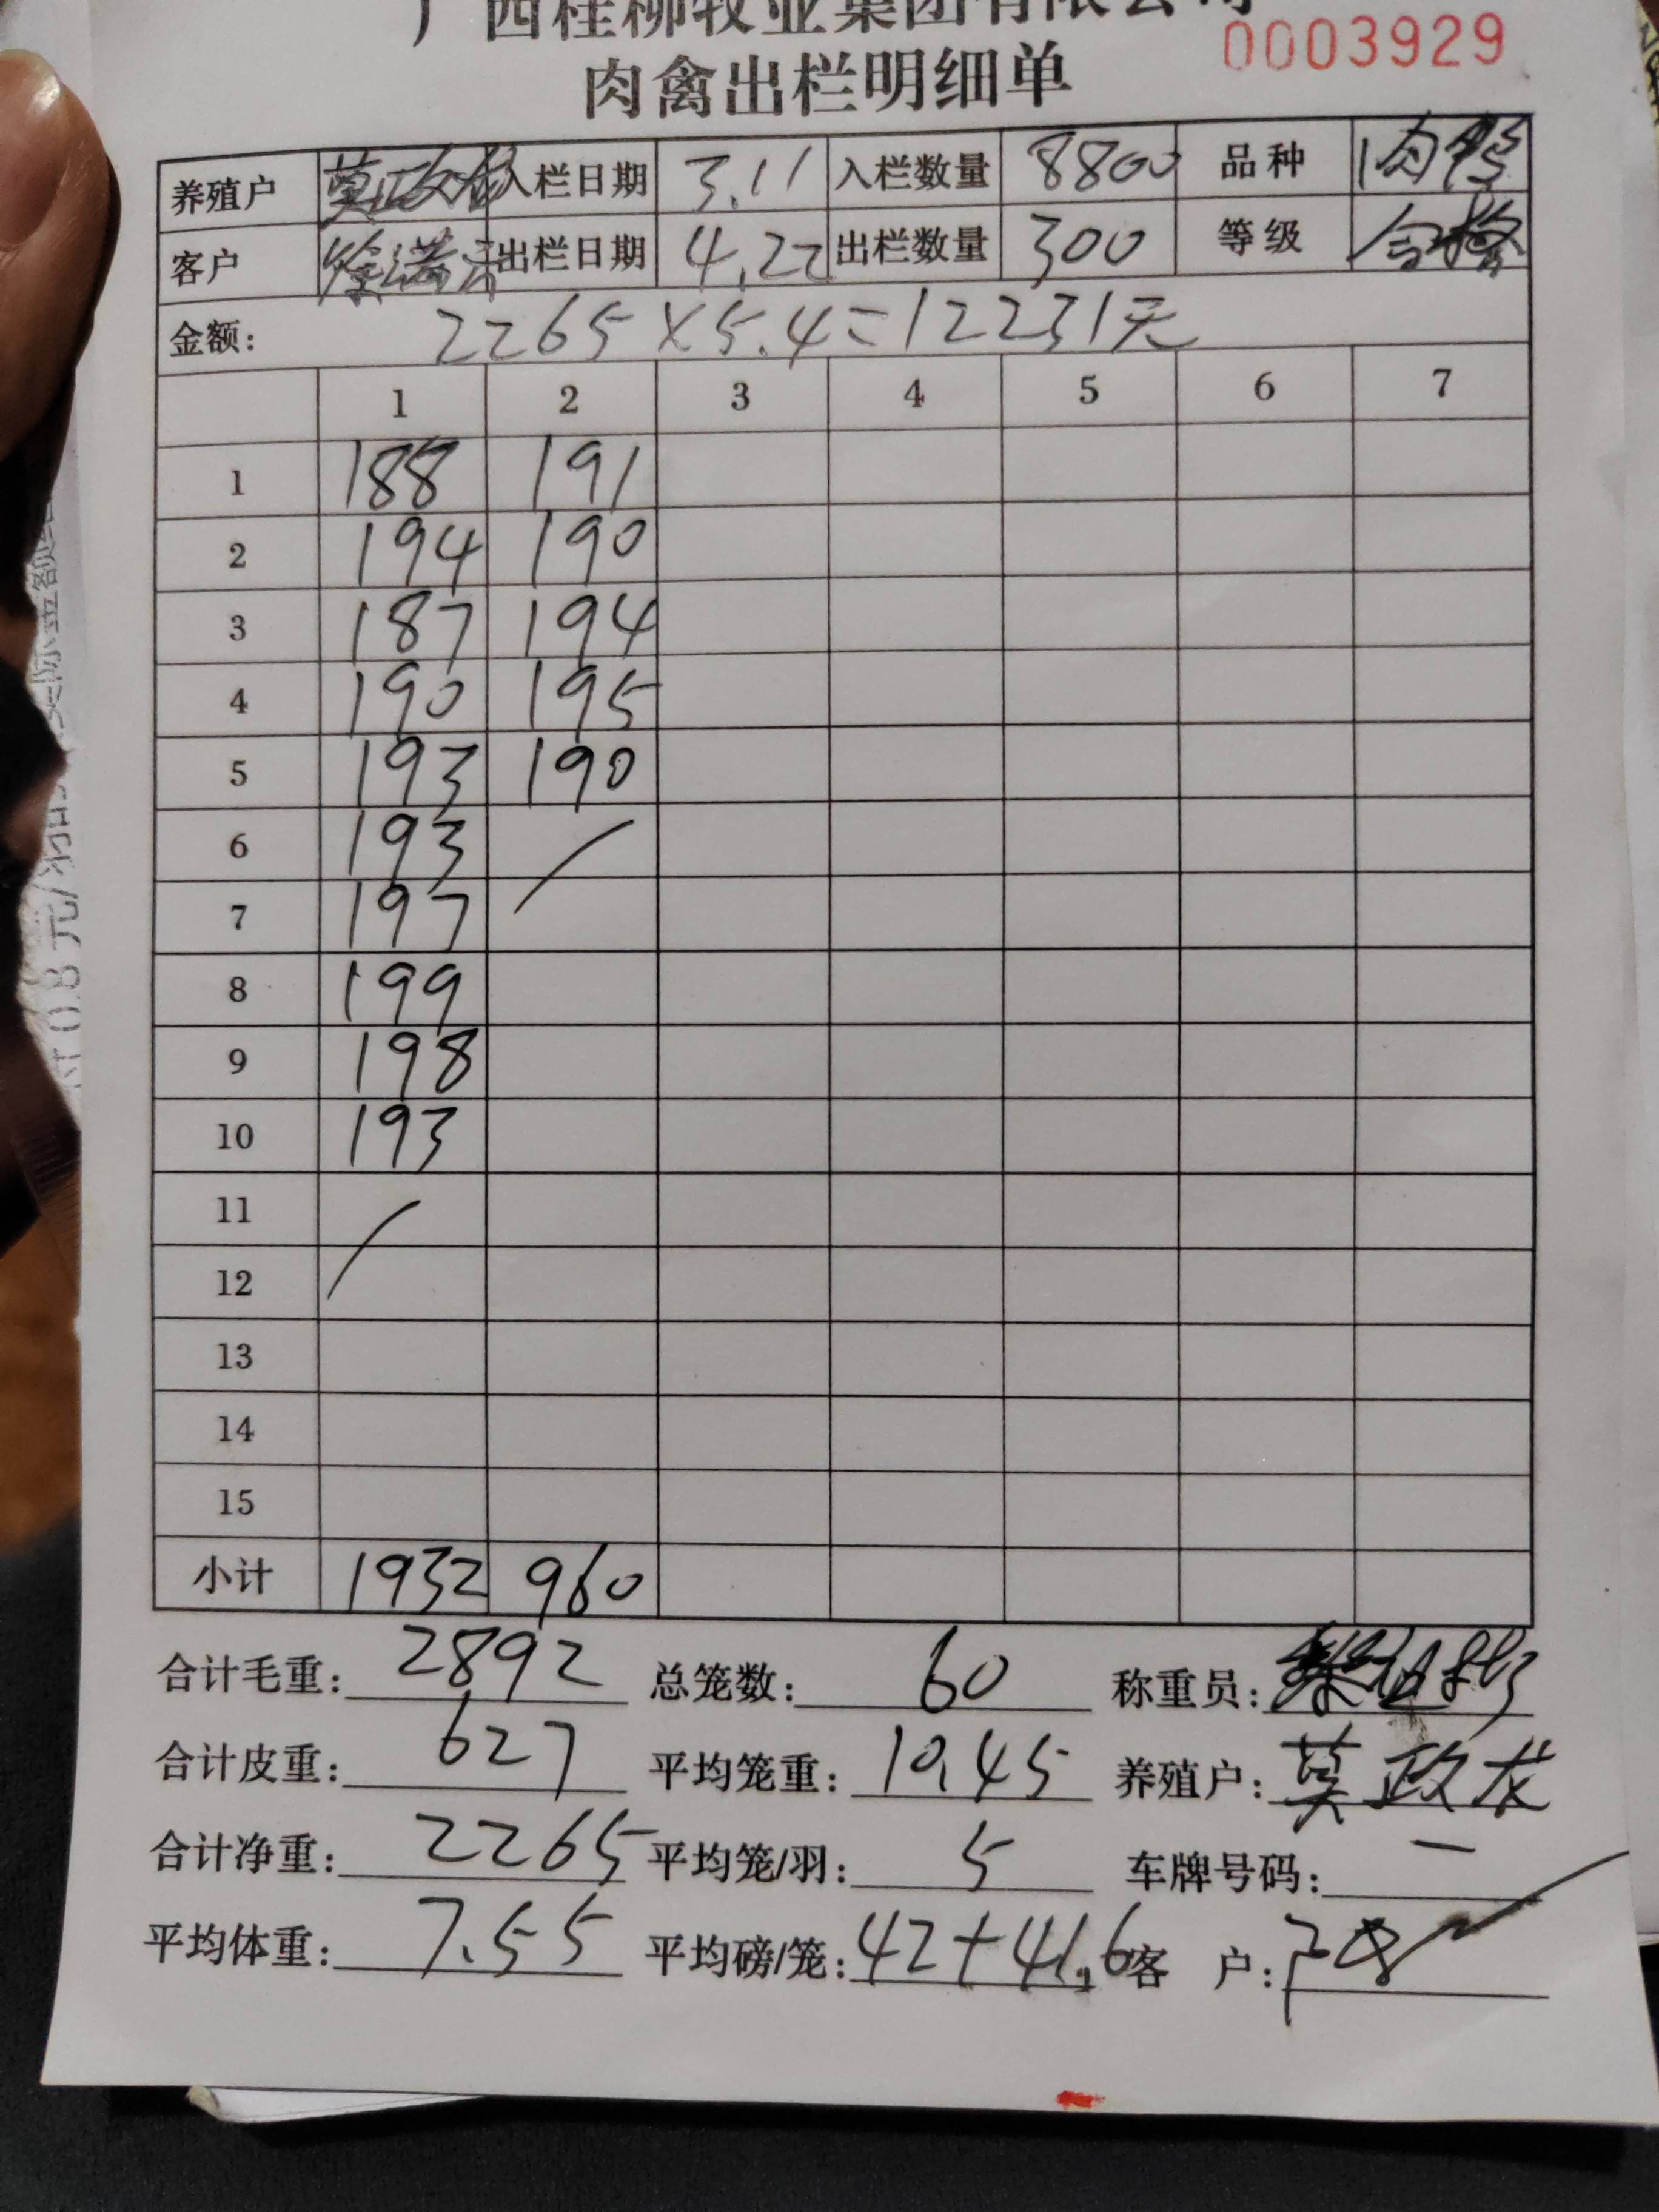 广西桂柳牧业集团有限公司
0003929
肉禽出栏明细单
养殖户 莫政龙 入栏日期 3.11 入栏数量 8800 品种 肉鸭
客户 出栏日期 4.22 出栏数量 300 等级 合格
金额: 2265×5.4=12231元
1 2 3 4 5 6 7
1 188 191
2 194 190
3 187 194
4 190 195
5 193 190
6 193
7 197
8 199
9 198
10 193
11
12
13
14
15
小计 1932 960
合计毛重: 2892 总笼数: 60 称重员:
合计皮重: 627 平均笼重: 10.45 养殖户: 莫政龙
合计净重: 2265 平均笼/羽: 5 车牌号码: —
平均体重: 7.55 平均磅/笼: 42+41.6 客 户: